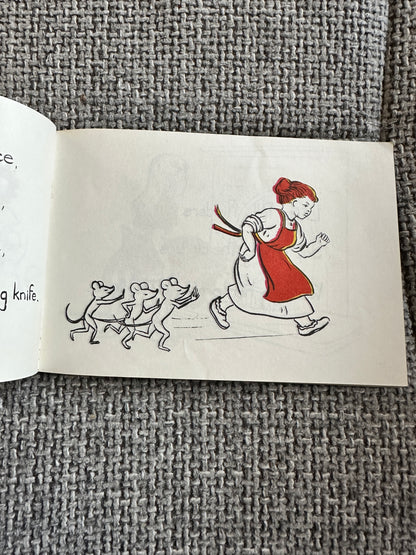 ce,
,
,
g knife.